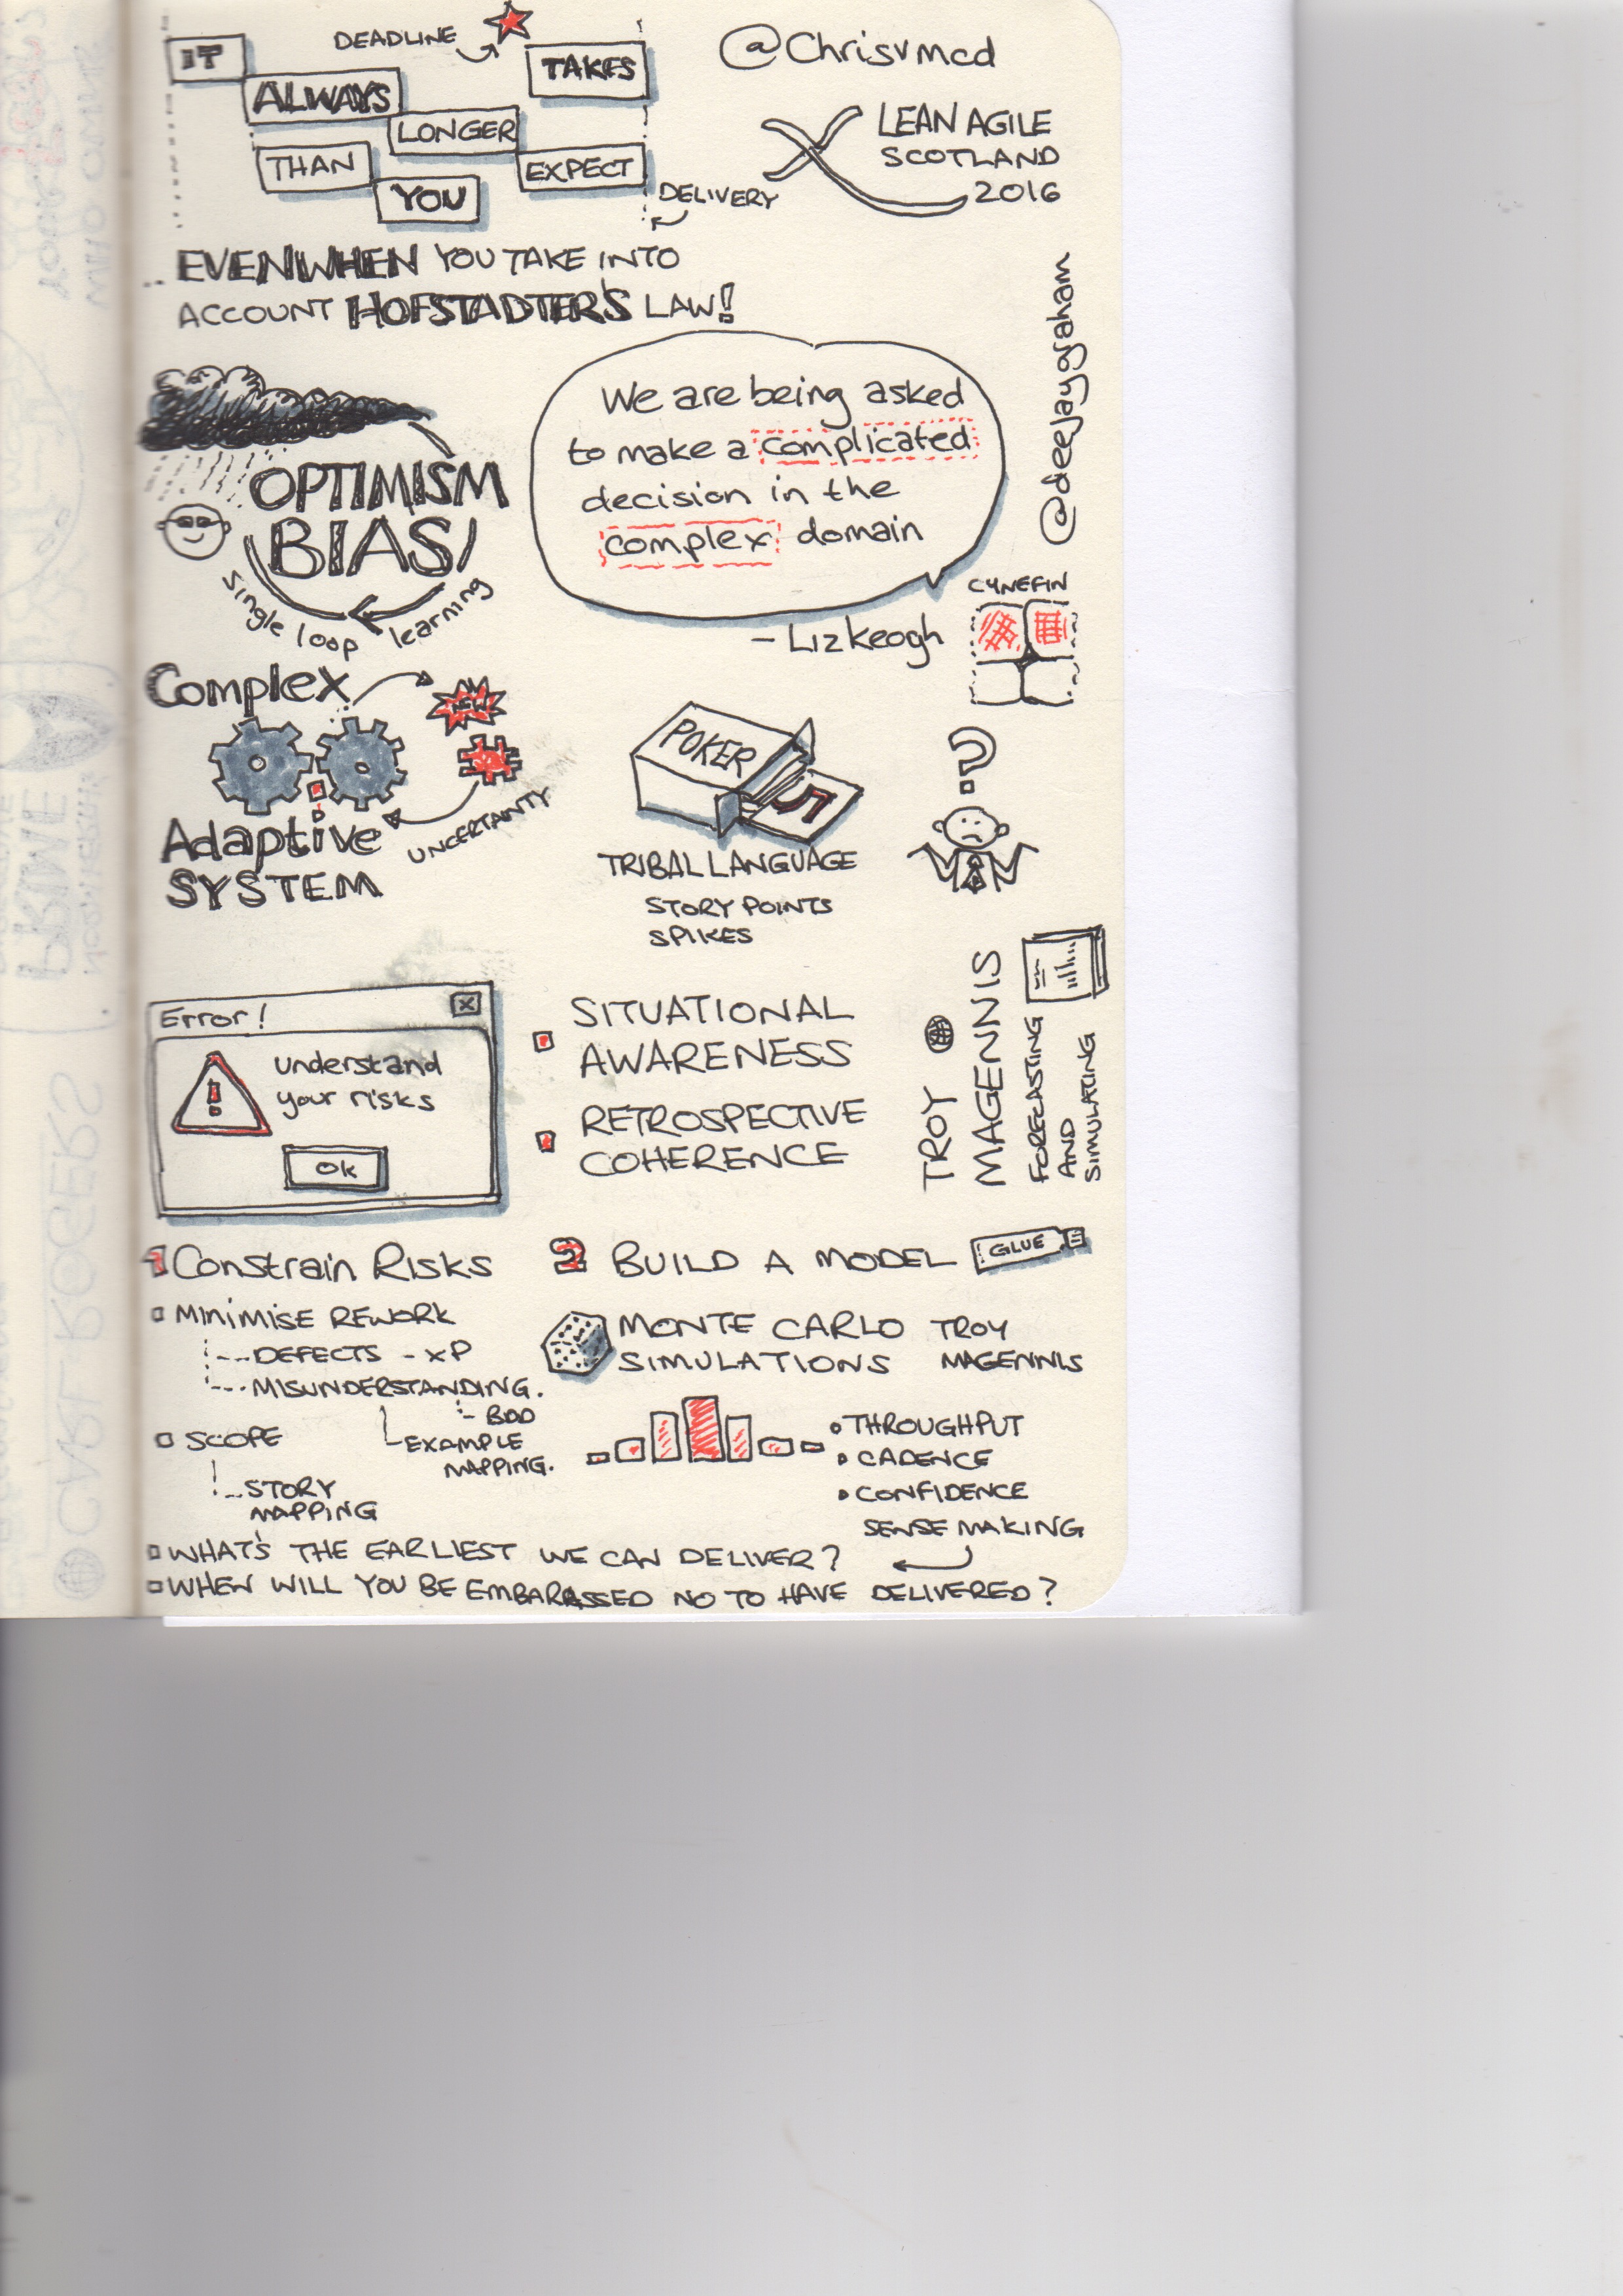 IT
DEADLINE
TAKES
ALWAYS
LONGER
THAN
EXPECT
YOU
DELIVERY
@Chrisvmcd
LEAN AGILE
SCOTLAND
2016
.. EVEN WHEN YOU TAKE INTO
ACCOUNT HOFSTADTER'S LAW!
@deejaygraham
OPTIMISM
BIAS
single loop learning
We are being asked
to make a complicated
decision in the
complex domain
- Liz Keogh
CYNEFIN
Complex
NEW
Adaptive
SYSTEM
UNCERTAINTY
POKER
5
TRIBAL LANGUAGE
STORY POINTS
SPIKES
?
Error!
X
!
understand
your risks
Ok
SITUATIONAL
AWARENESS
RETROSPECTIVE
COHERENCE
TROY
MAGENNIS
FORECASTING
AND
SIMULATING
1 Constrain Risks
MINIMISE REWORK
DEFECTS - XP
MISUNDERSTANDING.
- BDD
EXAMPLE
MAPPING.
SCOPE
STORY
MAPPING
2 BUILD A MODEL
GLUE
MONTE CARLO TROY
SIMULATIONS MAGENNIS
THROUGHPUT
CADENCE
CONFIDENCE
SENSE MAKING
WHAT'S THE EARLIEST WE CAN DELIVER?
WHEN WILL YOU BE EMBARRASSED NO TO HAVE DELIVERED?
CARL ROGERS